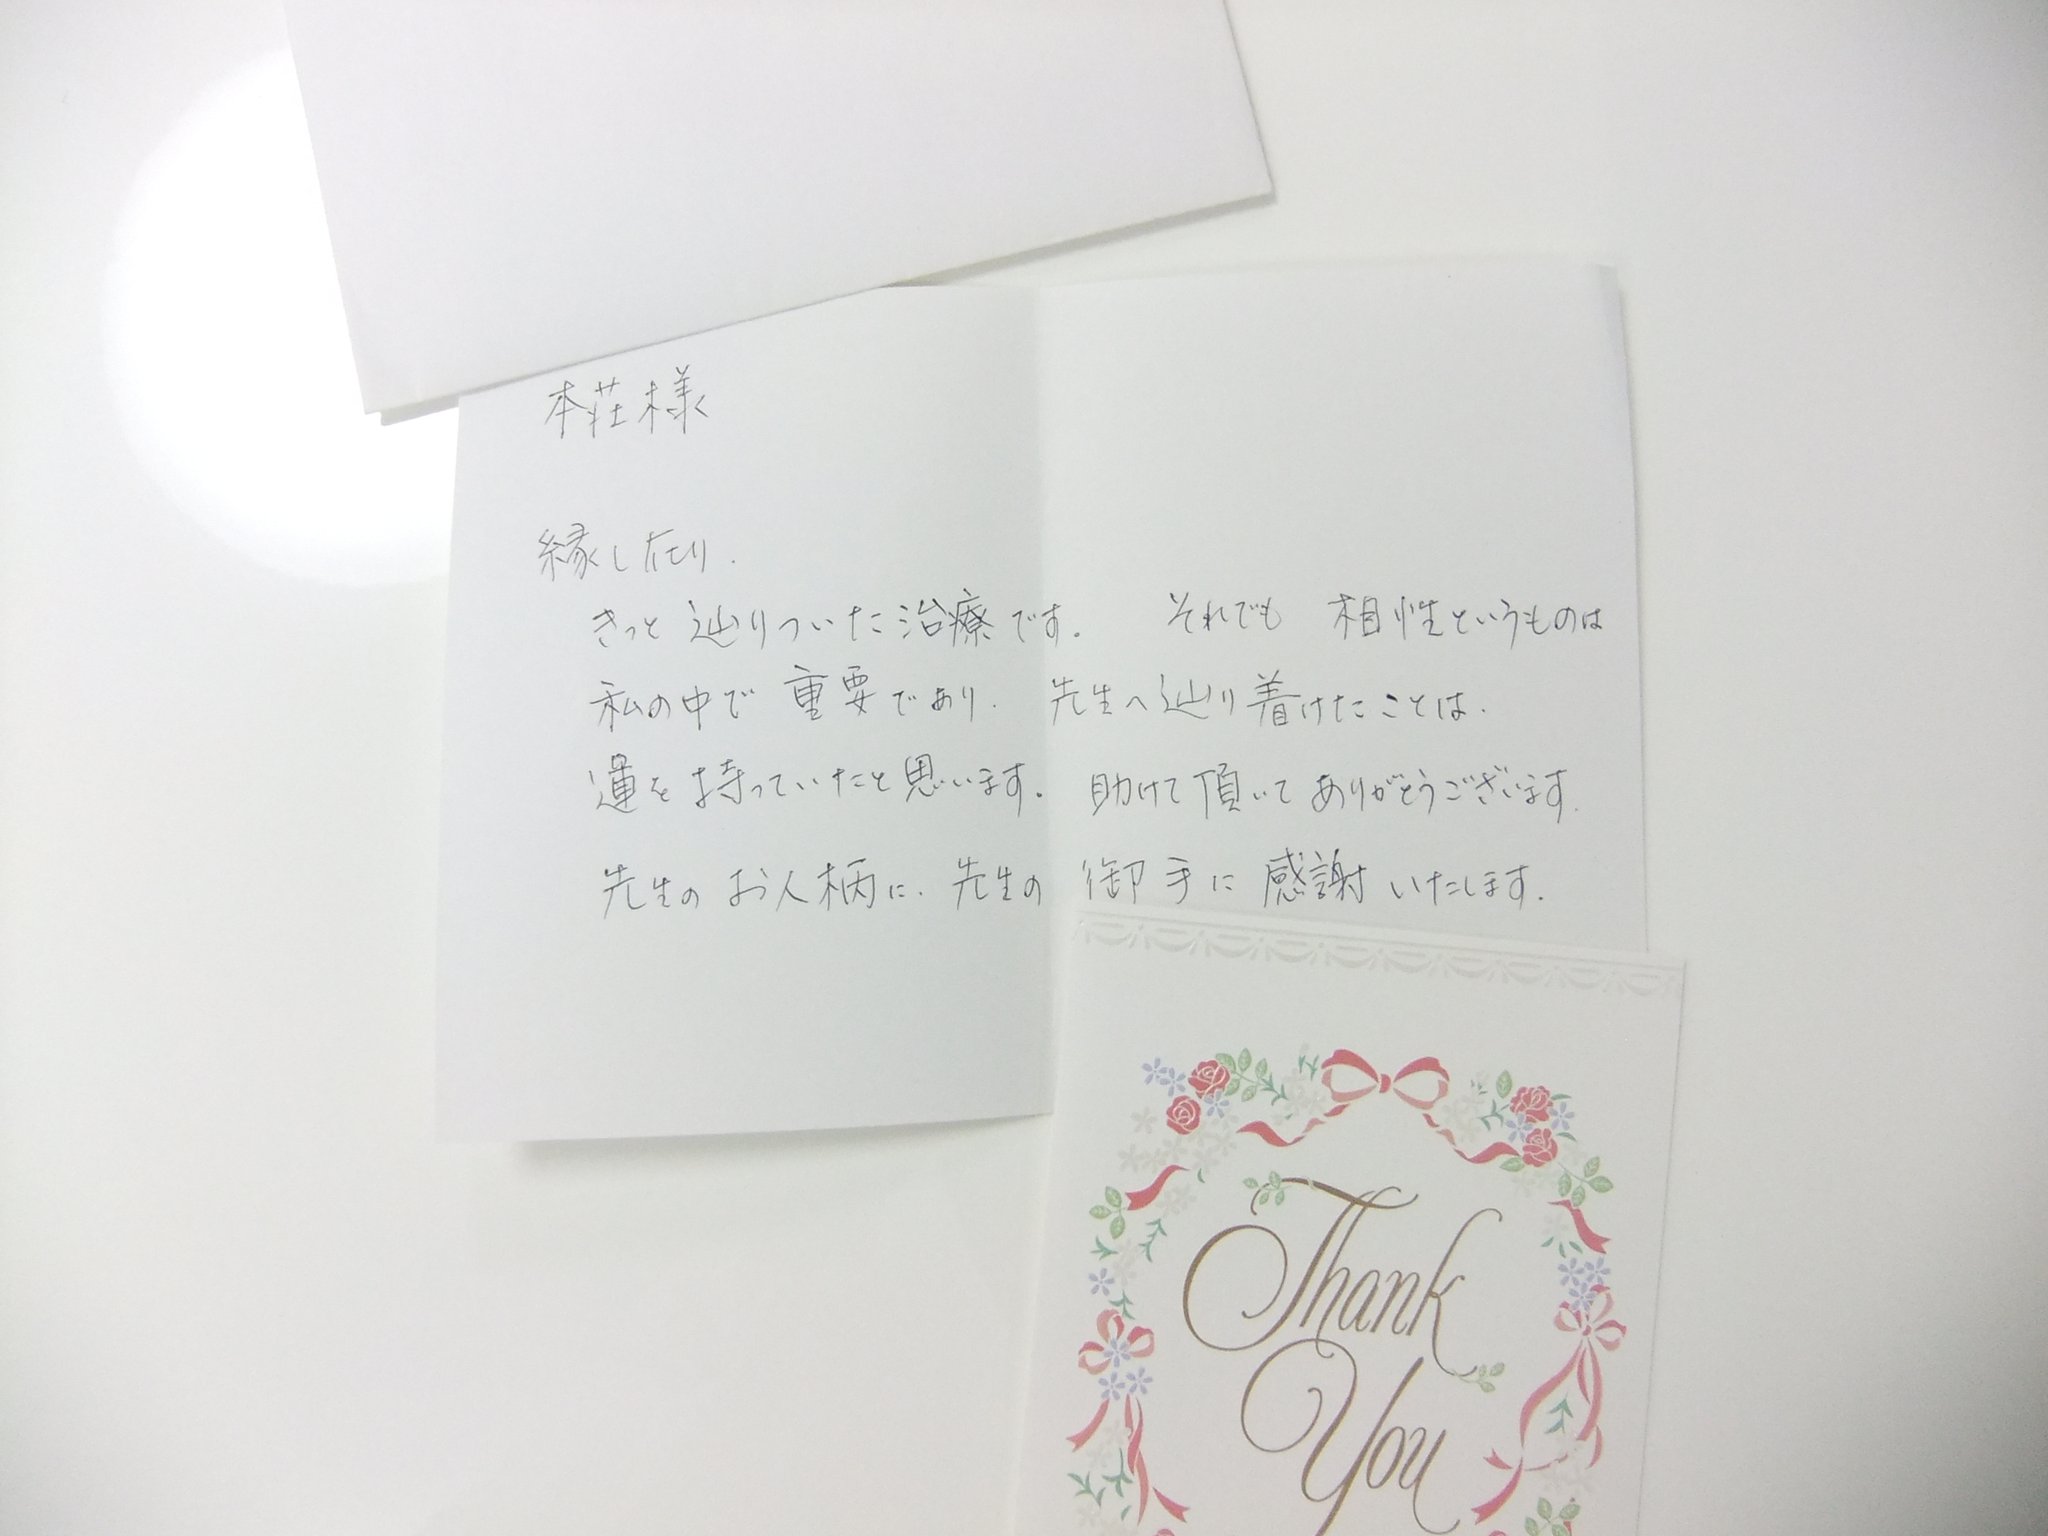 本荘様
縁し在り.
きっと辿りついた治療です. それでも 相性というものは
私の中で 重要であり. 先生へ辿り着けたことは.
運を持っていたと思います. 助けて頂いてありがとうございます.
先生のお人柄に. 先生の 御手に 感謝いたします.
Thank
You